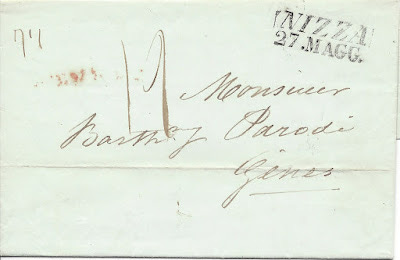 NIZZA
27.MAGG.
Monsieur
Barthy Parodi
Gênes